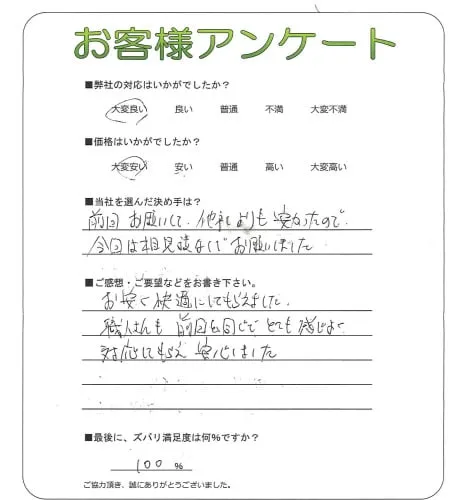 お客様アンケート
■弊社の対応はいかがでしたか?
大変良い 良い 普通 不満 大変不満
■価格はいかがでしたか?
大変安い 安い 普通 高い 大変高い
■当社を選んだ決め手は?
前回お願いして、他社よりも安かったので
今回は相見積なしでお願いしました
■ご感想・ご要望などをお書き下さい。
お安く快適にしてもらえました.
職人さんも前回と同じでとても感じよく
対応してもらえ安心しました
■最後に、ズバリ満足度は何%ですか?
100 %
ご協力頂き、誠にありがとうございました。